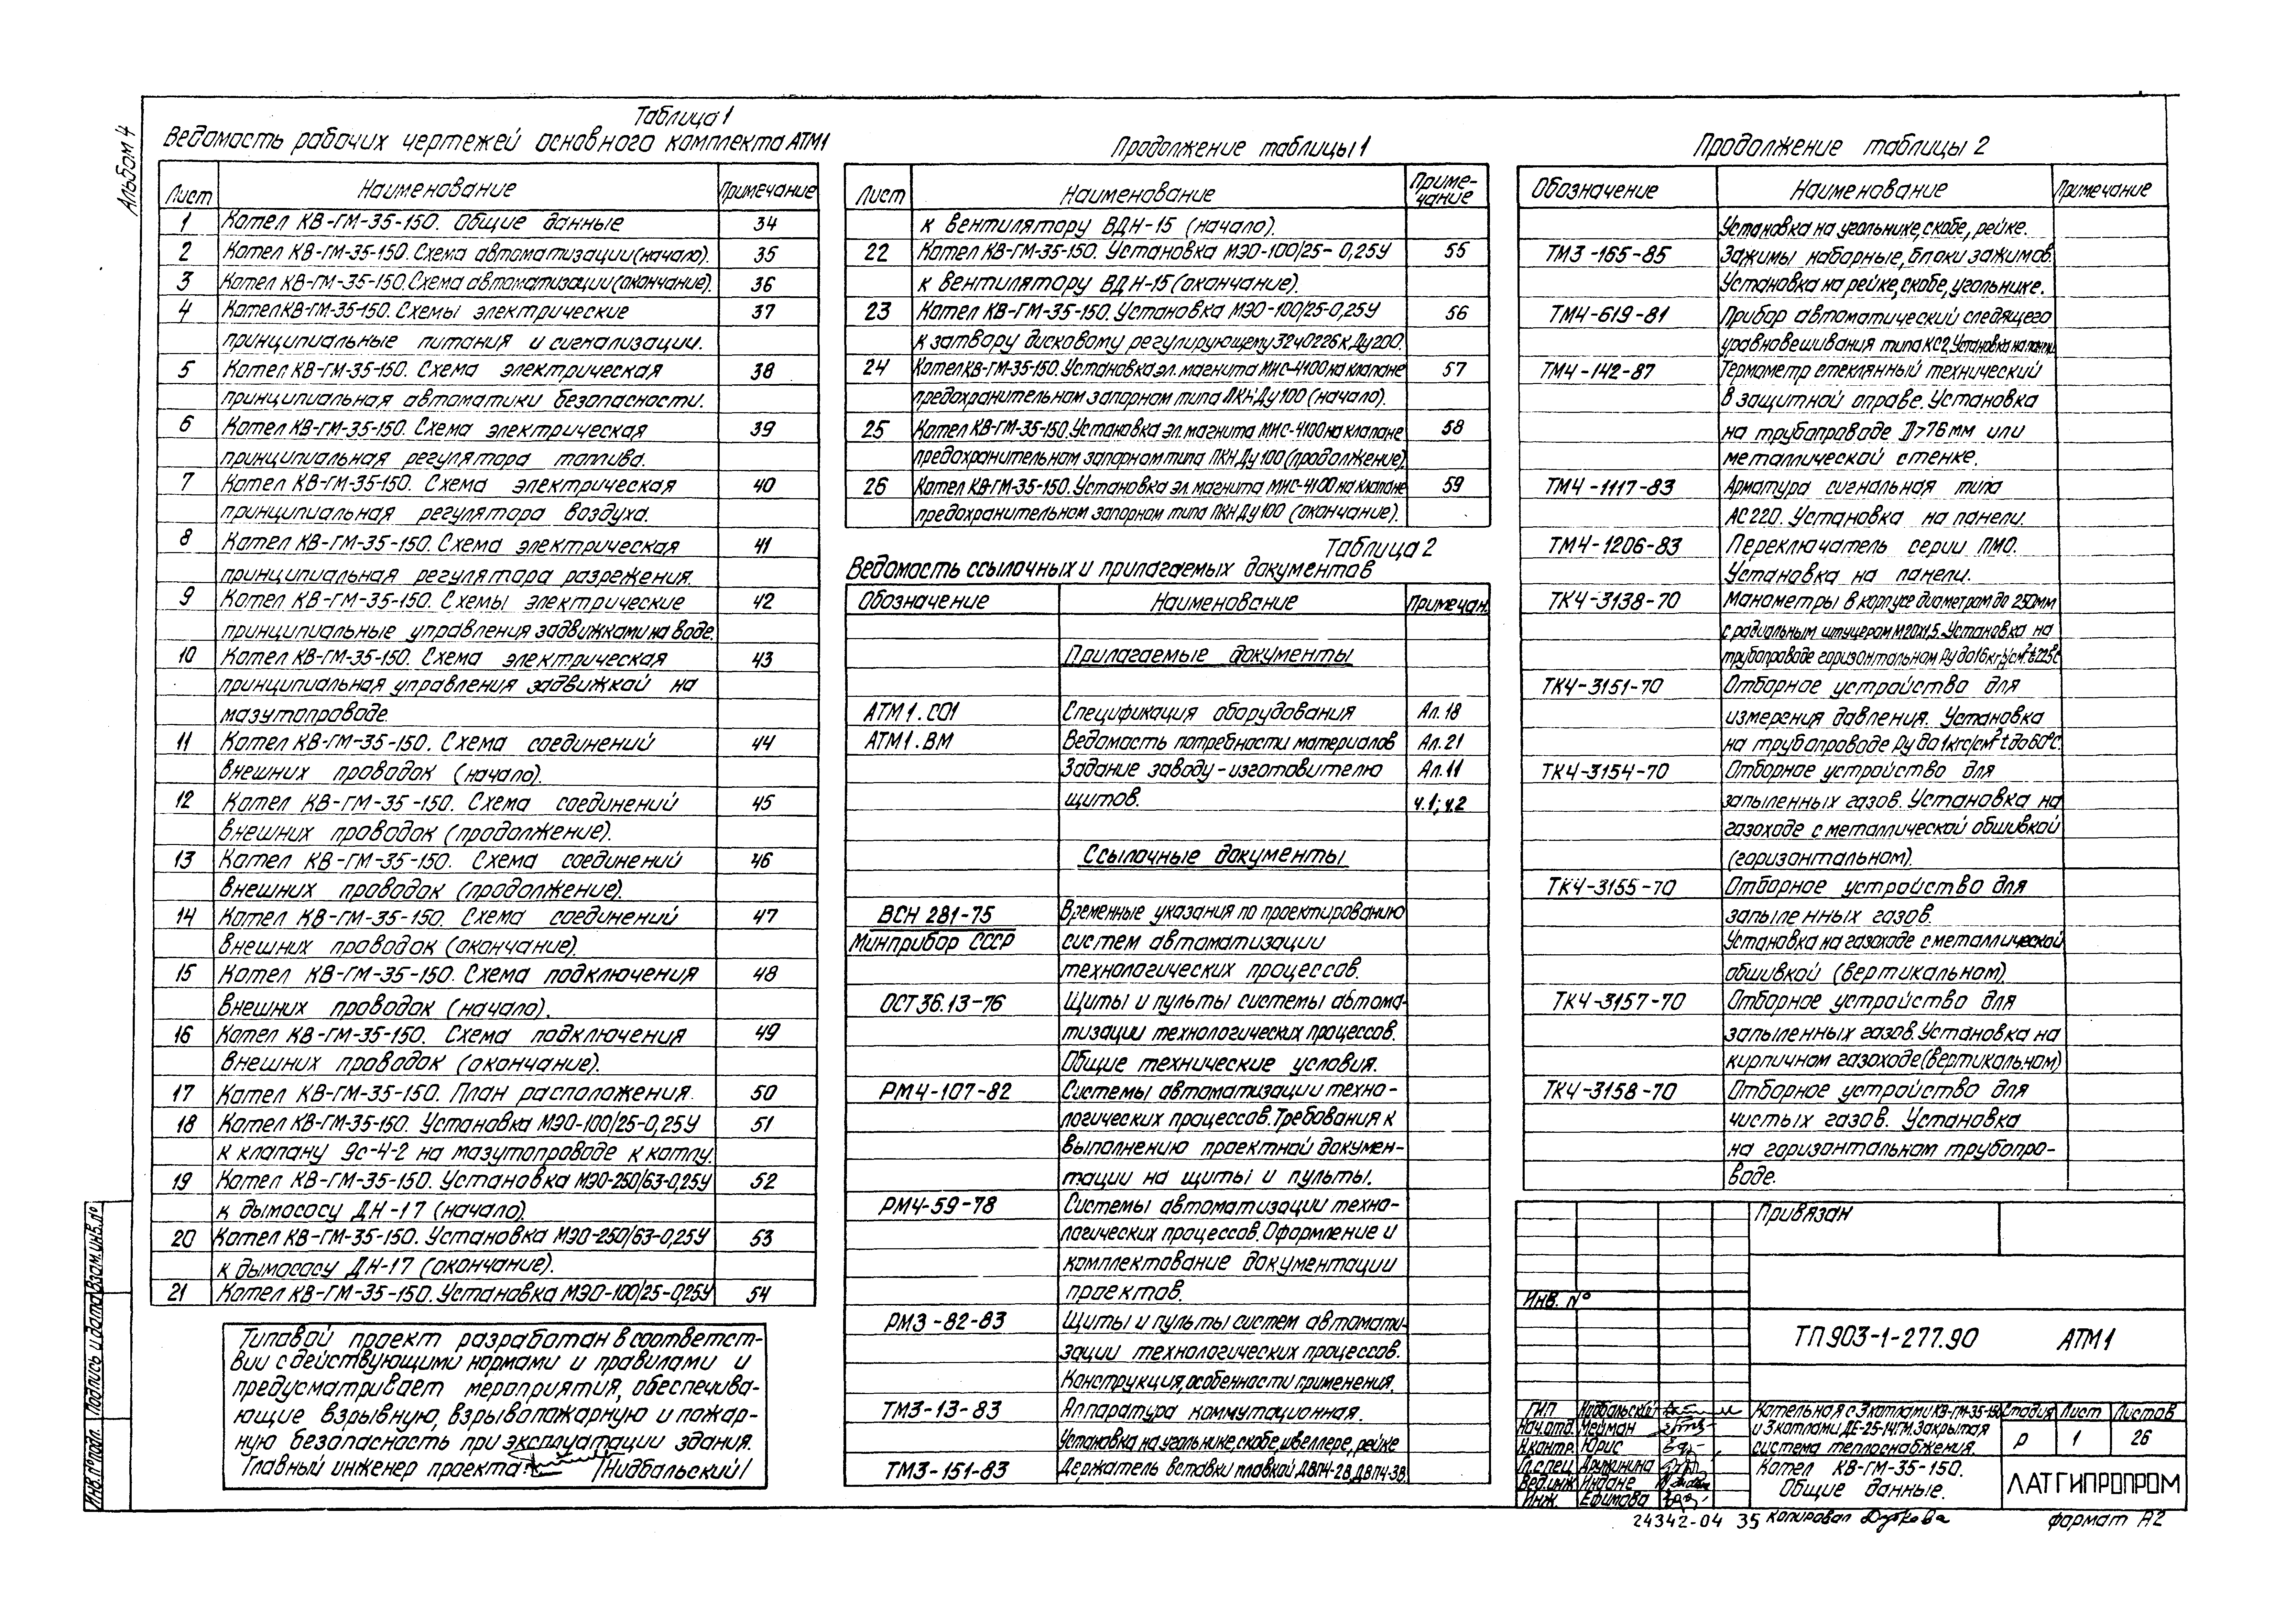 Альбом 4
Таблица 1
Ведомость рабочих чертежей основного комплекта АТМ1
Лист Наименование Примечание
1 Котел КВ-ГМ-35-150. Общие данные 34
2 Котел КВ-ГМ-35-150. Схема автоматизации (начало). 35
3 Котел КВ-ГМ-35-150. Схема автоматизации (окончание). 36
4 Котел КВ-ГМ-35-150. Схемы электрические 37
принципиальные питания и сигнализации.
5 Котел КВ-ГМ-35-150. Схема электрическая 38
принципиальная автоматики безопасности.
6 Котел КВ-ГМ-35-150. Схема электрическая 39
принципиальная регулятора топлива.
7 Котел КВ-ГМ-35-150. Схема электрическая 40
принципиальная регулятора воздуха.
8 Котел КВ-ГМ-35-150. Схема электрическая 41
принципиальная регулятора разрежения.
9 Котел КВ-ГМ-35-150. Схемы электрические 42
принципиальные управления задвижками на воде.
10 Котел КВ-ГМ-35-150. Схема электрическая 43
принципиальная управления задвижкой на
мазутопроводе.
11 Котел КВ-ГМ-35-150. Схема соединений 44
внешних проводок (начало).
12 Котел КВ-ГМ-35-150. Схема соединений 45
внешних проводок (продолжение).
13 Котел КВ-ГМ-35-150. Схема соединений 46
внешних проводок (продолжение).
14 Котел КВ-ГМ-35-150. Схема соединений 47
внешних проводок (окончание).
15 Котел КВ-ГМ-35-150. Схема подключения 48
внешних проводок (начало).
16 Котел КВ-ГМ-35-150. Схема подключения 49
внешних проводок (окончание).
17 Котел КВ-ГМ-35-150. План расположения. 50
18 Котел КВ-ГМ-35-150. Установка МЭО-100/25-0,25У 51
к клапану 9с-4-2 на мазутопроводе к котлу.
19 Котел КВ-ГМ-35-150. Установка МЭО-250/63-0,25У 52
к дымососу ДН-17 (начало).
20 Котел КВ-ГМ-35-150. Установка МЭО-250/63-0,25У 53
к дымососу ДН-17 (окончание).
21 Котел КВ-ГМ-35-150. Установка МЭО-100/25-0,25У 54
Типовой проект разработан в соответст-
вии с действующими нормами и правилами и
предусматривает мероприятия, обеспечива-
ющие взрывную, взрывопожарную и пожар-
ную безопасность при эксплуатации здания.
Главный инженер проекта: /Нидбальский/
Продолжение таблицы 1
Лист Наименование Приме-
чание
к вентилятору ВДН-15 (начало).
22 Котел КВ-ГМ-35-150. Установка МЭО-100/25-0,25У 55
к вентилятору ВДН-15 (окончание).
23 Котел КВ-ГМ-35-150. Установка МЭО-100/25-0,25У 56
к затвору дисковому регулирующему 32ч022бк Ду 200.
24 Котел КВ-ГМ-35-150. Установка эл. магнита МИС-4100 на клапане 57
предохранительном запорном типа ПКН Ду 100 (начало).
25 Котел КВ-ГМ-35-150. Установка эл. магнита МИС-4100 на клапане 58
предохранительном запорном типа ПКН Ду 100 (продолжение).
26 Котел КВ-ГМ-35-150. Установка эл. магнита МИС-4100 на клапане 59
предохранительном запорном типа ПКН Ду 100 (окончание).
Таблица 2
Ведомость ссылочных и прилагаемых документов
Обозначение Наименование Примечан.
Прилагаемые документы
АТМ1.СО1 Спецификация оборудования Ал.18
АТМ1.ВМ Ведомость потребности материалов Ал.21
Задание заводу-изготовителю Ал.11
щитов. ч.1; ч.2
Ссылочные документы
ВСН 281-75 Временные указания по проектированию
Минприбор СССР систем автоматизации
технологических процессов.
ОСТ36.13-76 Щиты и пульты системы автома-
тизации технологических процессов.
Общие технические условия.
РМ4-107-82 Системы автоматизации техно-
логических процессов. Требования к
выполнению проектной докумен-
тации на щиты и пульты.
РМ4-59-78 Системы автоматизации техно-
логических процессов. Оформление и
комплектование документации
проектов.
РМ3-82-83 Щиты и пульты систем автомати-
зации технологических процессов.
Конструкция, особенности применения.
ТМ3-13-83 Аппаратура коммутационная.
Установка на угольнике, скобе, швеллере, рейке
ТМ3-151-83 Держатель вставки плавкой ДВП4-2В, ДВП4-3В.
Продолжение таблицы 2
Обозначение Наименование Примечание
Установка на угольнике, скобе, рейке.
ТМ3-165-85 Зажимы наборные, блоки зажимов.
Установка на рейке, скобе, угольнике.
ТМ4-619-81 Прибор автоматический следящего
уравновешивания типа КС2. Установка на панели
ТМ4-142-87 Термометр стеклянный технический
в защитной оправе. Установка
на трубопроводе Д>76мм или
металлической стенке.
ТМ4-1117-83 Арматура сигнальная типа
АС220. Установка на панели.
ТМ4-1206-83 Переключатель серии ПМО.
Установка на панели.
ТК4-3138-70 Манометры в корпусе диаметром до 250мм
с радиальным штуцером М20х1,5. Установка на
трубопроводе горизонтальном Ру до 16 кгс/см² t≤225°С
ТК4-3151-70 Отборное устройство для
измерения давления. Установка
на трубопроводе Ру до 1кгс/см² t до 60°С.
ТК4-3154-70 Отборное устройство для
запыленных газов. Установка на
газоходе с металлической обшивкой
(горизонтальном).
ТК4-3155-70 Отборное устройство для
запыленных газов.
Установка на газоходе с металлической
обшивкой (вертикальном).
ТК4-3157-70 Отборное устройство для
запыленных газов. Установка на
кирпичном газоходе (вертикальном)
ТК4-3158-70 Отборное устройство для
чистых газов. Установка
на горизонтальном трубопро-
воде.
Привязан
Инв. №
ТП 903-1-277.90 АТМ1
ГИП Нидбальский
Нач.отд. Мейман
Н.контр. Юрис
Гл.спец. Дружинина
Вед.инж Индане
Инж. Ефимова
Котельная с 3 котлами КВ-ГМ-35-150
и 3 котлами ДЕ-25-14ГМ. Закрытая
система теплоснабжения.
Стадия Лист Листов
Р 1 26
Котел КВ-ГМ-35-150.
Общие данные.
ЛАТГИПРОПРОМ
24342-04 35 Копировал Дубкова формат А2
Инв.№ подл. Подпись и дата Взам.инв.№